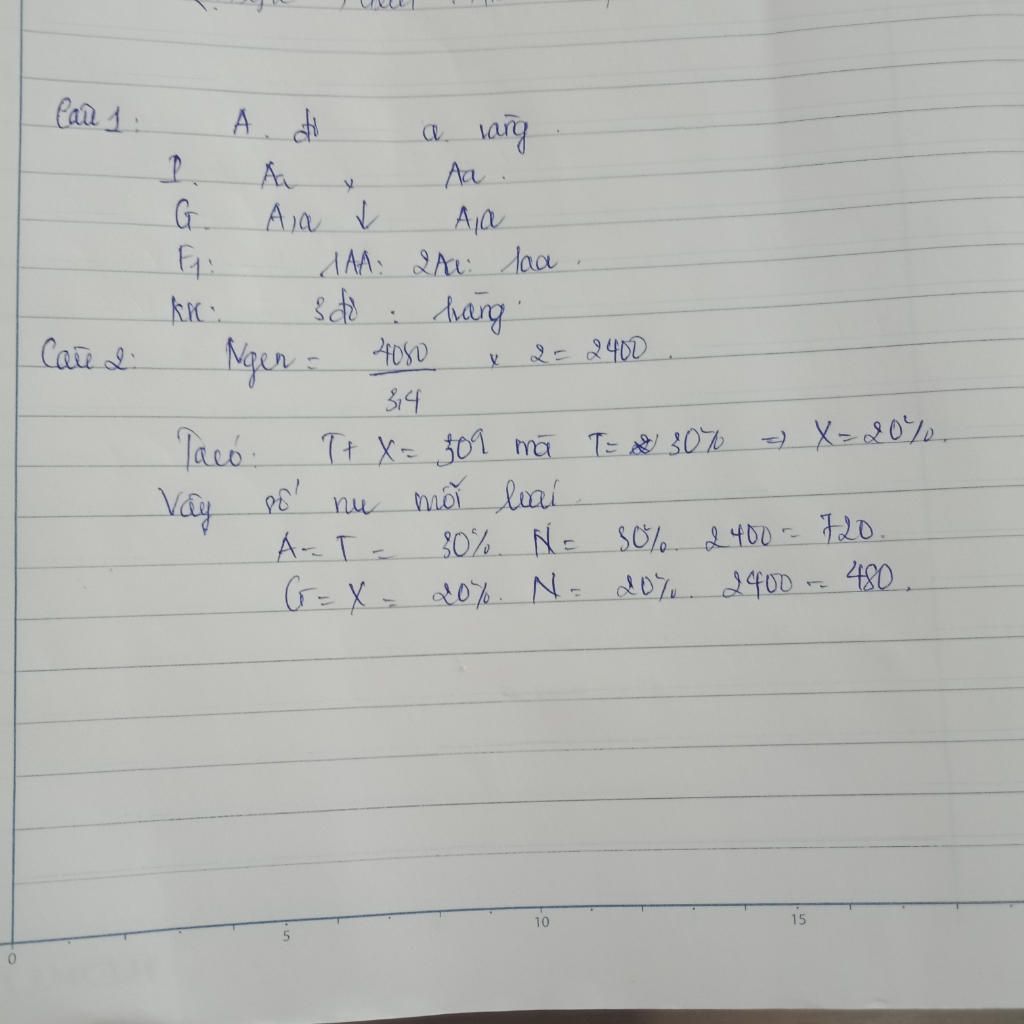 Câu 1: A. đỏ a. trắng.
P. Aa x Aa.
G. A,a ↓ A,a
F1: 1AA: 2Aa: 1aa.
KH: 3đỏ : 1trắng.
Câu 2: Ngen = 4080/3,4 x 2 = 2400.
Ta có: T + X = 50% mà T = 30% => X = 20%.
Vậy số nu mỗi loại
A = T = 30%. N = 30%. 2400 = 720.
G = X = 20%. N = 20%. 2400 = 480.
0 5 10 15